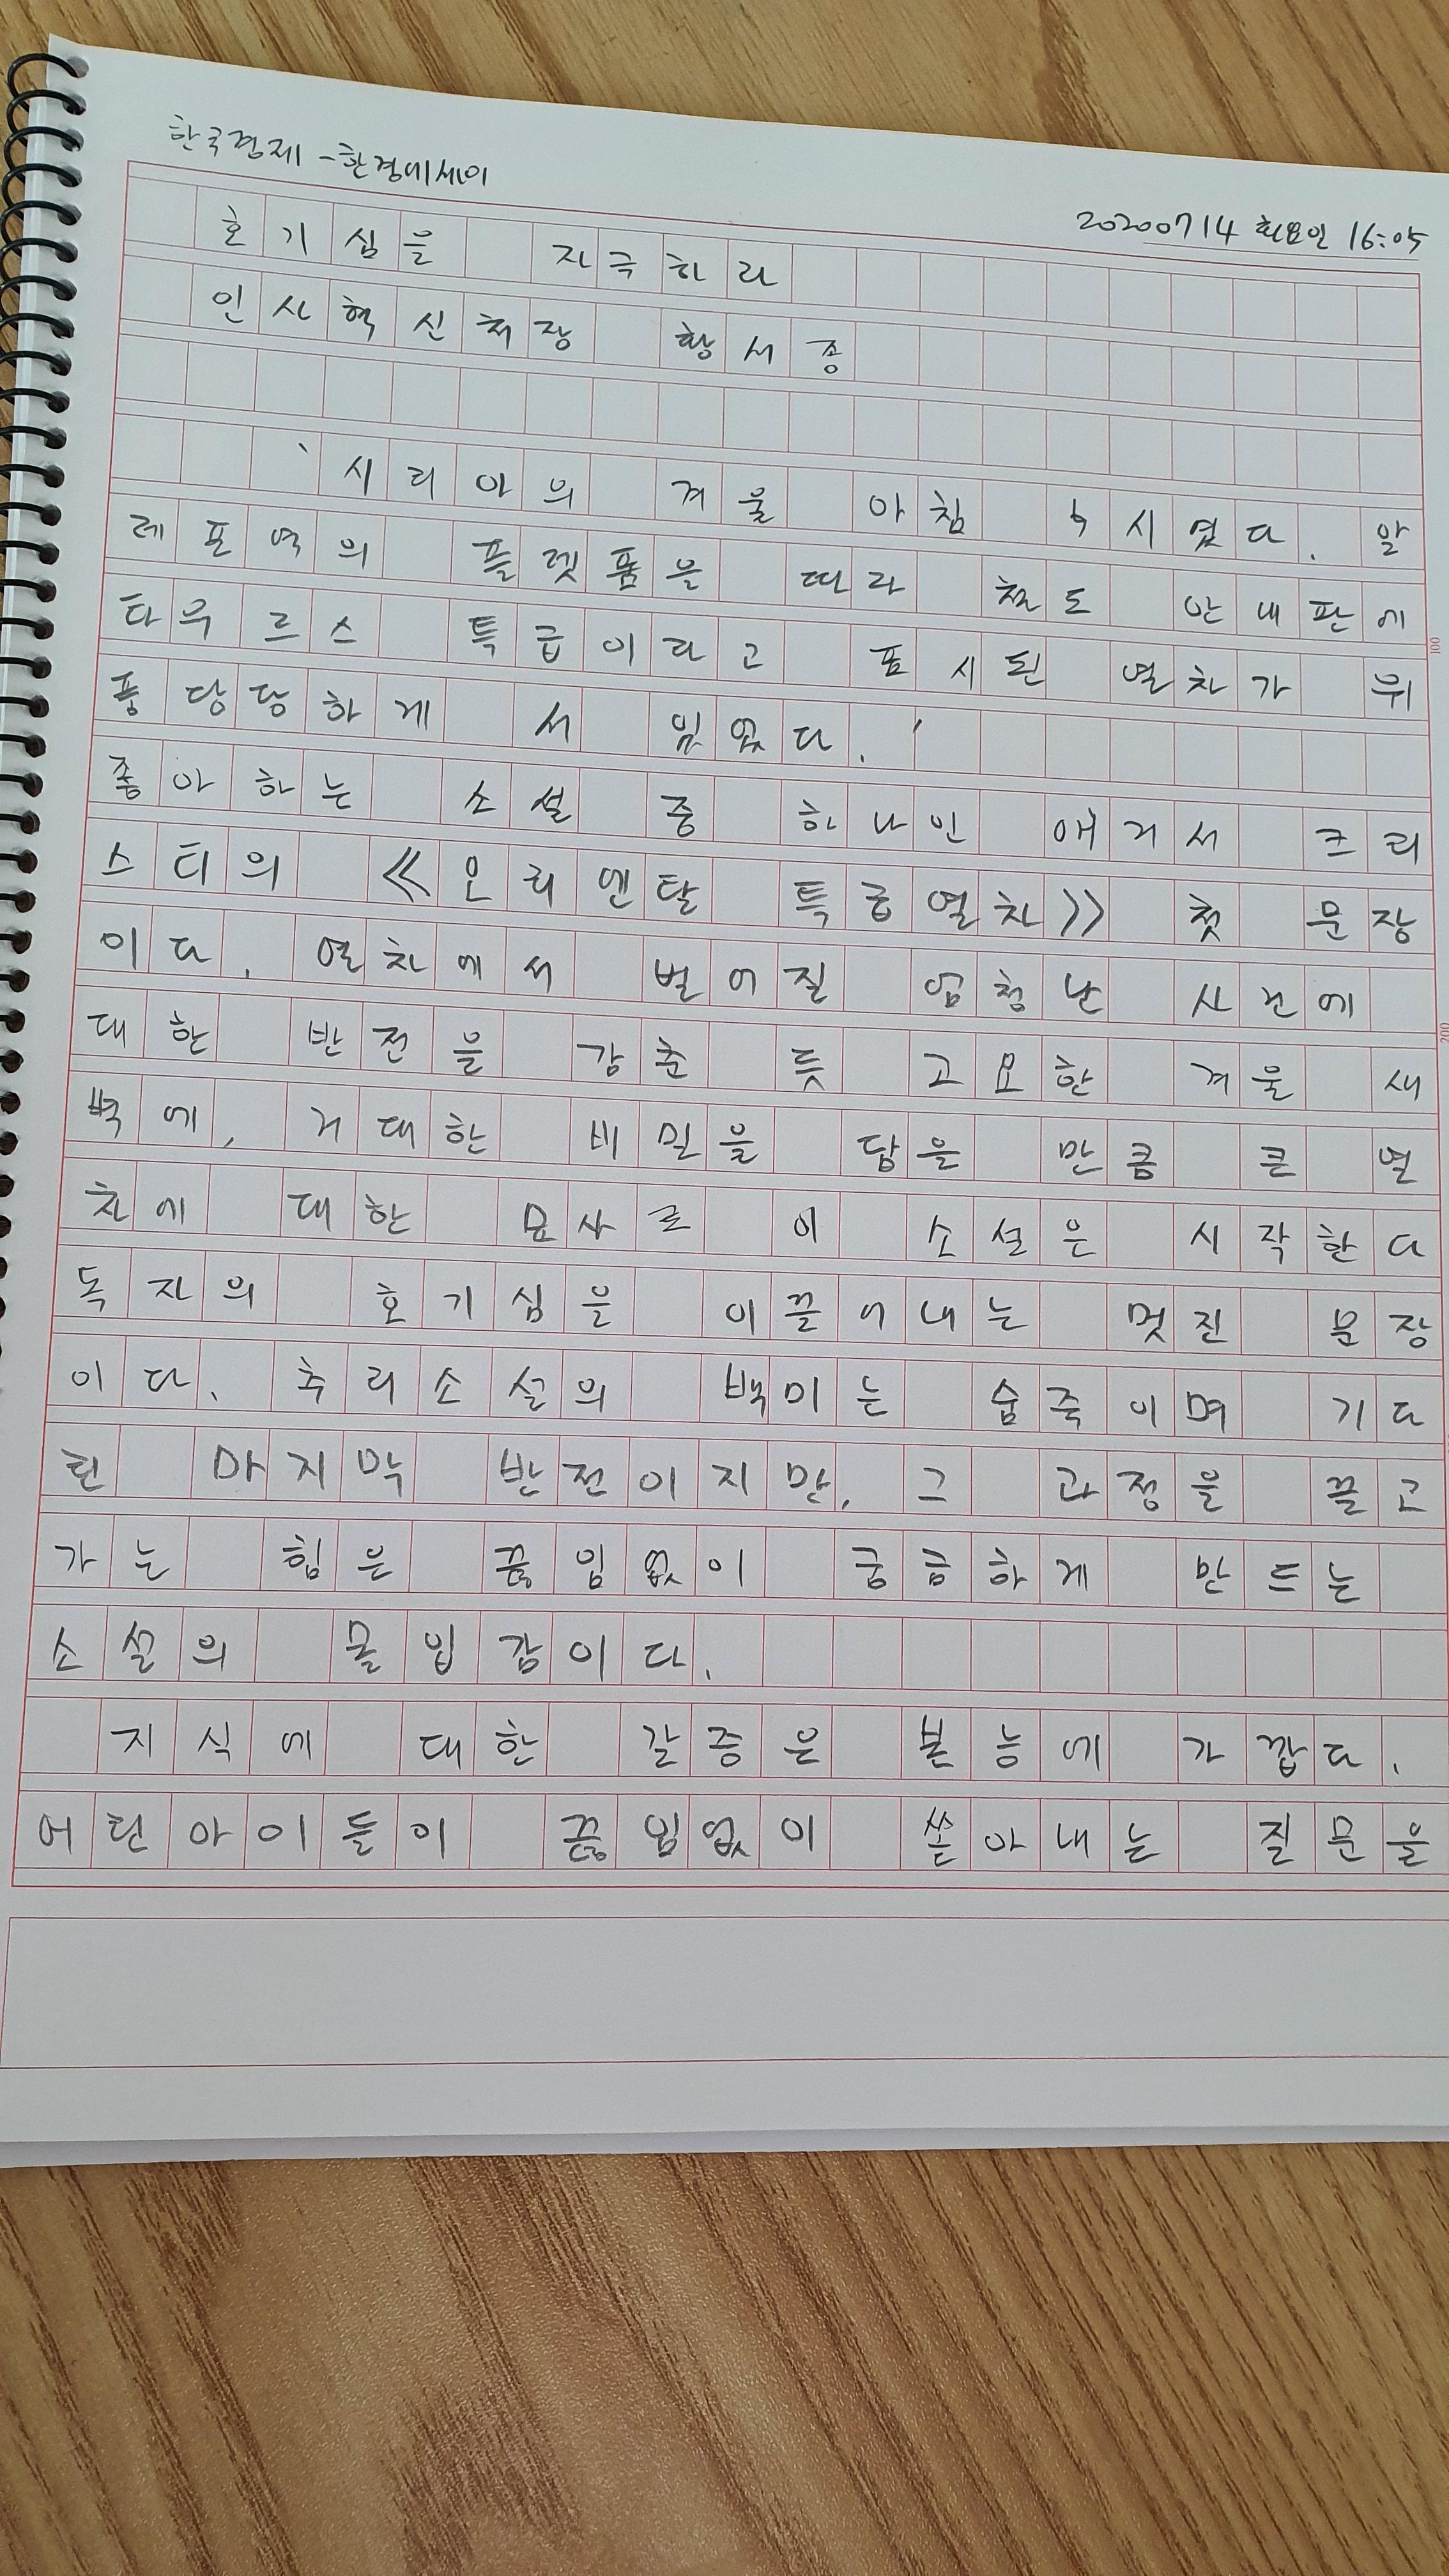 한국경제 - 한경에세이
20200714 화요일 16:05
호기심을 자극하라
인사혁신처장 황서종
‘시리아의 겨울 아침 5시였다. 알
레포역의 플렛폼을 따라 철도 안내판에
타우르스 특급이라고 표시된 열차가 위
풍당당하게 서 있었다.’
좋아하는 소설 중 하나인 애거서 크리
스티의 《오리엔탈 특급열차》 첫 문장
이다. 열차에서 벌어질 엄청난 사건에
대한 반전을 감춘 듯 고요한 겨울 새
벽에, 거대한 비밀을 담을 만큼 큰 열
차에 대한 묘사로 이 소설은 시작한다
독자의 호기심을 이끌어내는 멋진 문장
이다. 추리소설의 백미는 숨죽이며 기다
린 마지막 반전이지만, 그 과정을 끌고
가는 힘은 끊임없이 궁금하게 만드는
소설의 몰입감이다.
지식에 대한 갈증은 본능에 가깝다.
어린아이들이 끊임없이 쏟아내는 질문을
100
200